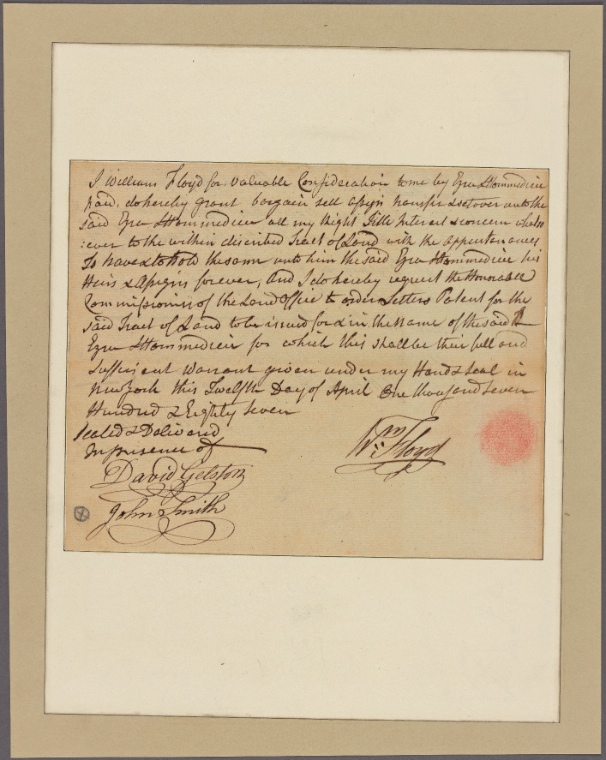 I William Floyd for Valuable Consideration to me by Ezra LHommedieu
paid. do hereby grant bargain sell assign transfer & set over unto the
said Ezra LHommedieu all my Right Title Interest & concern whatso
:ever to the within discribed Tract of Land with the appurtenances
To have & to Hold the same unto him the said Ezra LHommedieu his
Heirs & Assigns forever, And I do hereby request the Honorable
Commissioners of the Land Office to order Letters Patent for the
said Tract of Land to be issued for & in the name of the said
Ezra LHommedieu for which this shall be their full and
sufficient Warrant given under my Hand & Seal in
New York this Twelfth Day of April One thousand seven
Hundred & Eighty Seven
Sealed & Delivered
In presence of
Wm Floyd
David Gelston
John Smith